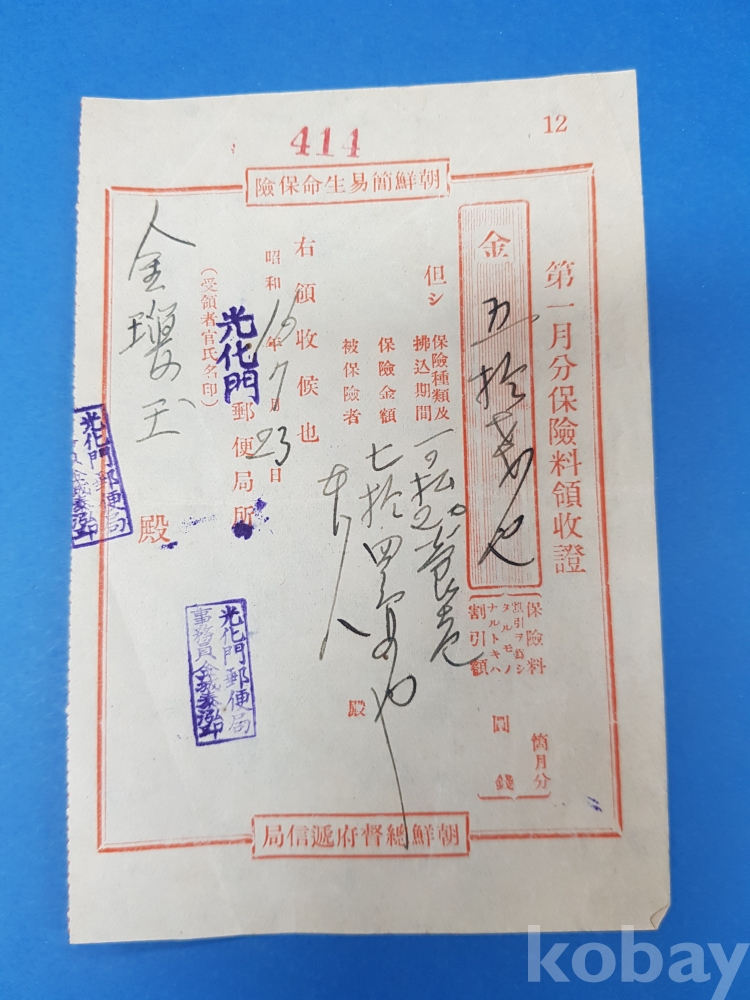 12
414
朝鮮簡易生命保險
第一月分保險料領收證
金 五拾錢也
保險料
割引ヲ爲シ
タルモノ
ナルトキハ
割引額
箇月分
圓 錢
但シ
保險種類及
拂込期間
保險金額
七拾四圓也
被保險者
本人
殿
右領收候也
昭和 年7月23日
光化門郵便局所
(受領者官氏名印)
殿
光化門郵便局
事務員
光化門郵便局
朝鮮總督府遞信局
kobay